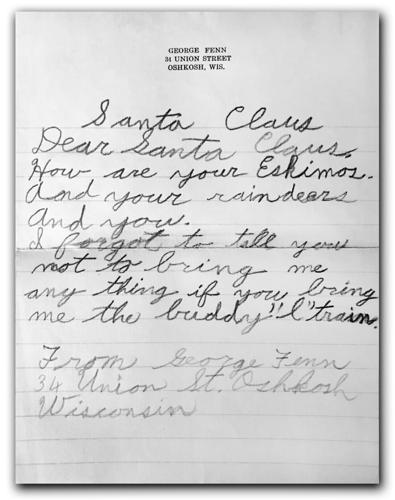 GEORGE FENN
34 UNION STREET
OSHKOSH, WIS.
Santa Claus
Dear Santa Claus,
How are your Eskimos.
And your raindears
And you.
I forgot to tell you
not to bring me
any thing if you bring
me the buddy "L" train.
From George Fenn
34 Union St. Oshkosh
Wisconsin